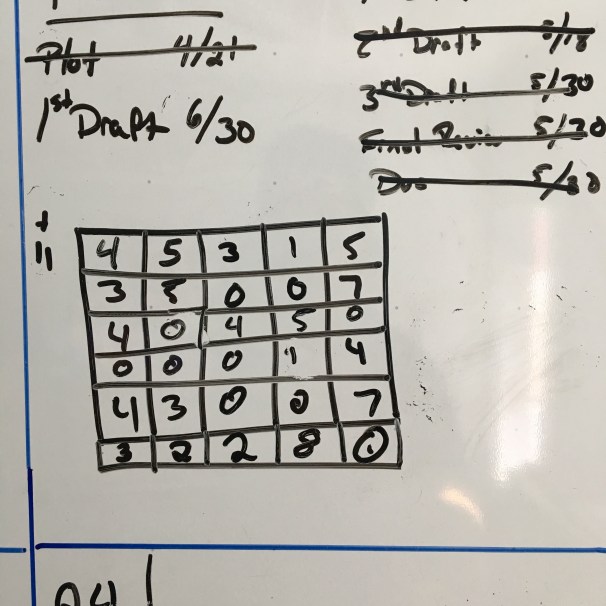 Plot 4/21
1st Draft 6/30
2nd Draft 5/18
3rd Draft 5/30
Final Review 5/30
Due 5/30
4 5 3 1 5
3 5 0 0 7
4 0 4 5 0
0 0 0 1 4
4 3 0 0 7
3 2 2 8 0